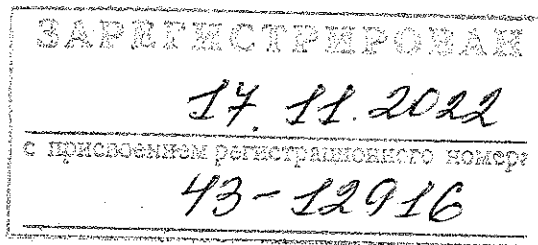 ЗАРЕГИСТРИРОВАН
17.11.2022
с присвоением регистрационного номера
43-12916